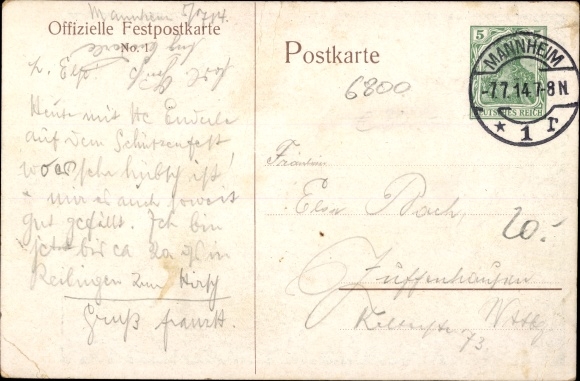 Mannheim 7/7 14.
Offizielle Festpostkarte
No. 1
L. Elsa
Heute mit Hc Enderle
auf dem Schützenfest,
wo es sehr hübsch ist,
mir es auch soweit
gut gefällt. Ich bin
jetzt bis ca in
Reilingen zum Hirsch
Gruß Frank.
Postkarte
6800
5
MANNHEIM
-7.7.14.7-8N
* 1 r
DEUTSCHES REICH
Fräulein
Elsa Bach,
20.-
Zuffenhausen
73.
Wttbg